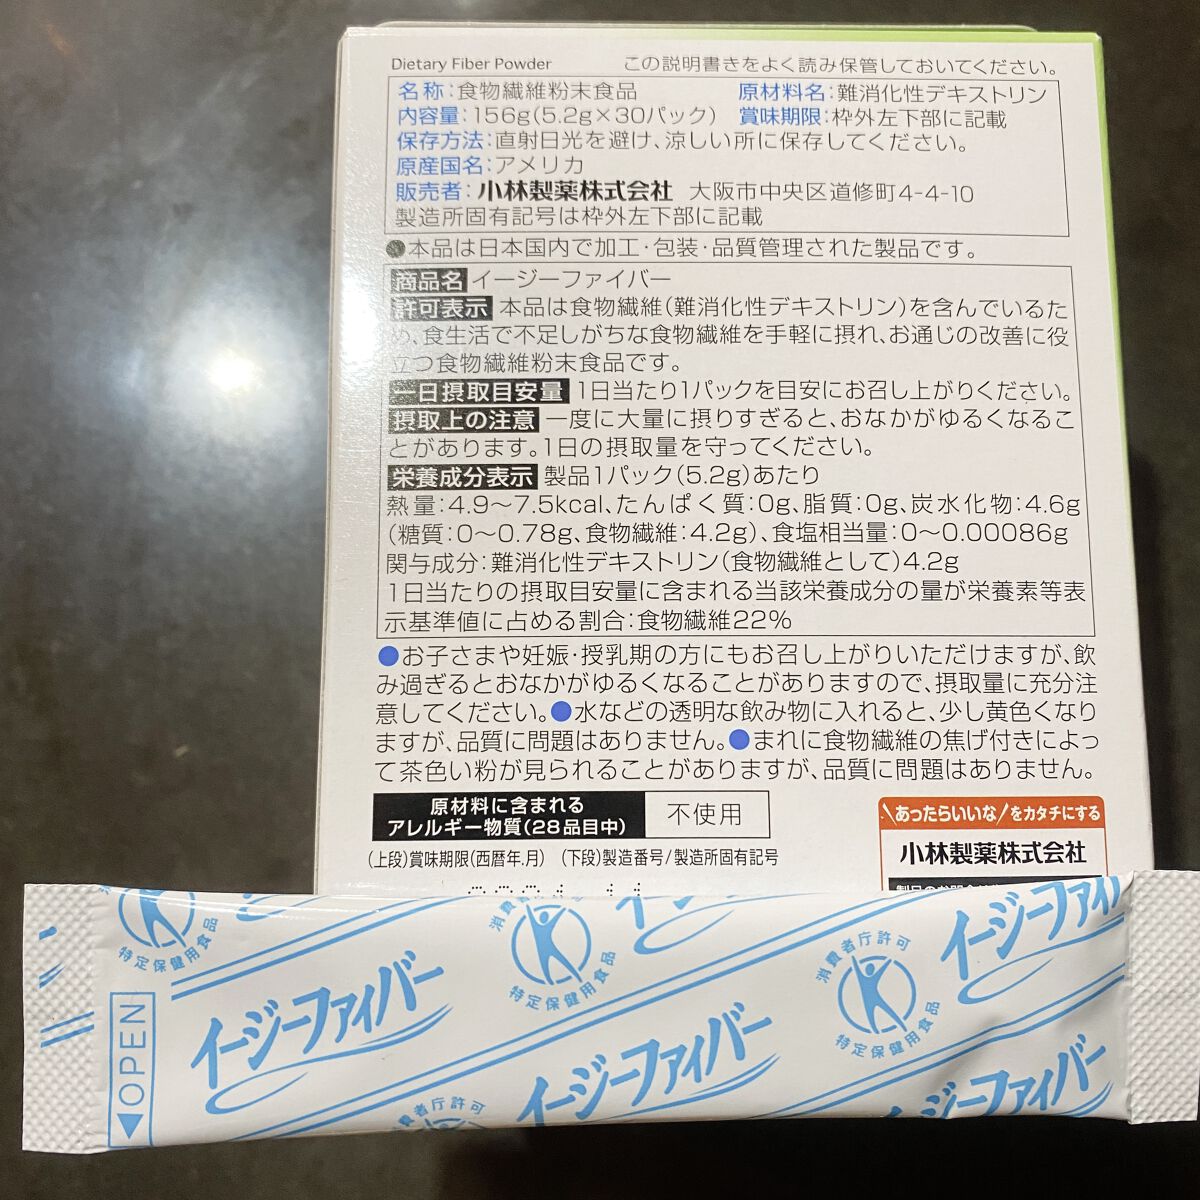 Dietary Fiber Powder　この説明書きをよく読み保管しておいてください。
名称:食物繊維粉末食品　原材料名:難消化性デキストリン
内容量:156g(5.2g×30パック)　賞味期限:枠外左下部に記載
保存方法:直射日光を避け、涼しい所に保存してください。
原産国名:アメリカ
販売者:小林製薬株式会社　大阪市中央区道修町4-4-10
製造所固有記号は枠外左下部に記載
●本品は日本国内で加工・包装・品質管理された製品です。
商品名 イージーファイバー
許可表示 本品は食物繊維(難消化性デキストリン)を含んでいるた
め、食生活で不足しがちな食物繊維を手軽に摂れ、お通じの改善に役
立つ食物繊維粉末食品です。
一日摂取目安量 1日当たり1パックを目安にお召し上がりください。
摂取上の注意 一度に大量に摂りすぎると、おなかがゆるくなるこ
とがあります。1日の摂取量を守ってください。
栄養成分表示 製品1パック(5.2g)あたり
熱量:4.9〜7.5kcal、たんぱく質:0g、脂質:0g、炭水化物:4.6g
(糖質:0〜0.78g、食物繊維:4.2g)、食塩相当量:0〜0.00086g
関与成分:難消化性デキストリン(食物繊維として)4.2g
1日当たりの摂取目安量に含まれる当該栄養成分の量が栄養素等表
示基準値に占める割合:食物繊維22%
●お子さまや妊娠・授乳期の方にもお召し上がりいただけますが、飲
み過ぎるとおなかがゆるくなることがありますので、摂取量に充分注
意してください。●水などの透明な飲み物に入れると、少し黄色くなり
ますが、品質に問題はありません。●まれに食物繊維の焦げ付きによっ
て茶色い粉が見られることがありますが、品質に問題はありません。
原材料に含まれる
アレルギー物質(28品目中)
不使用
(上段)賞味期限(西暦年.月)　(下段)製造番号/製造所固有記号
あったらいいなをカタチにする
小林製薬株式会社
特定保健用食品
消費者庁許可
特定保健用食品
消費者庁許可
特定保健用食品
イージーファイバー
OPEN
イージーファイバー
イージーファイバー
イージーファイバー
消費者庁許可